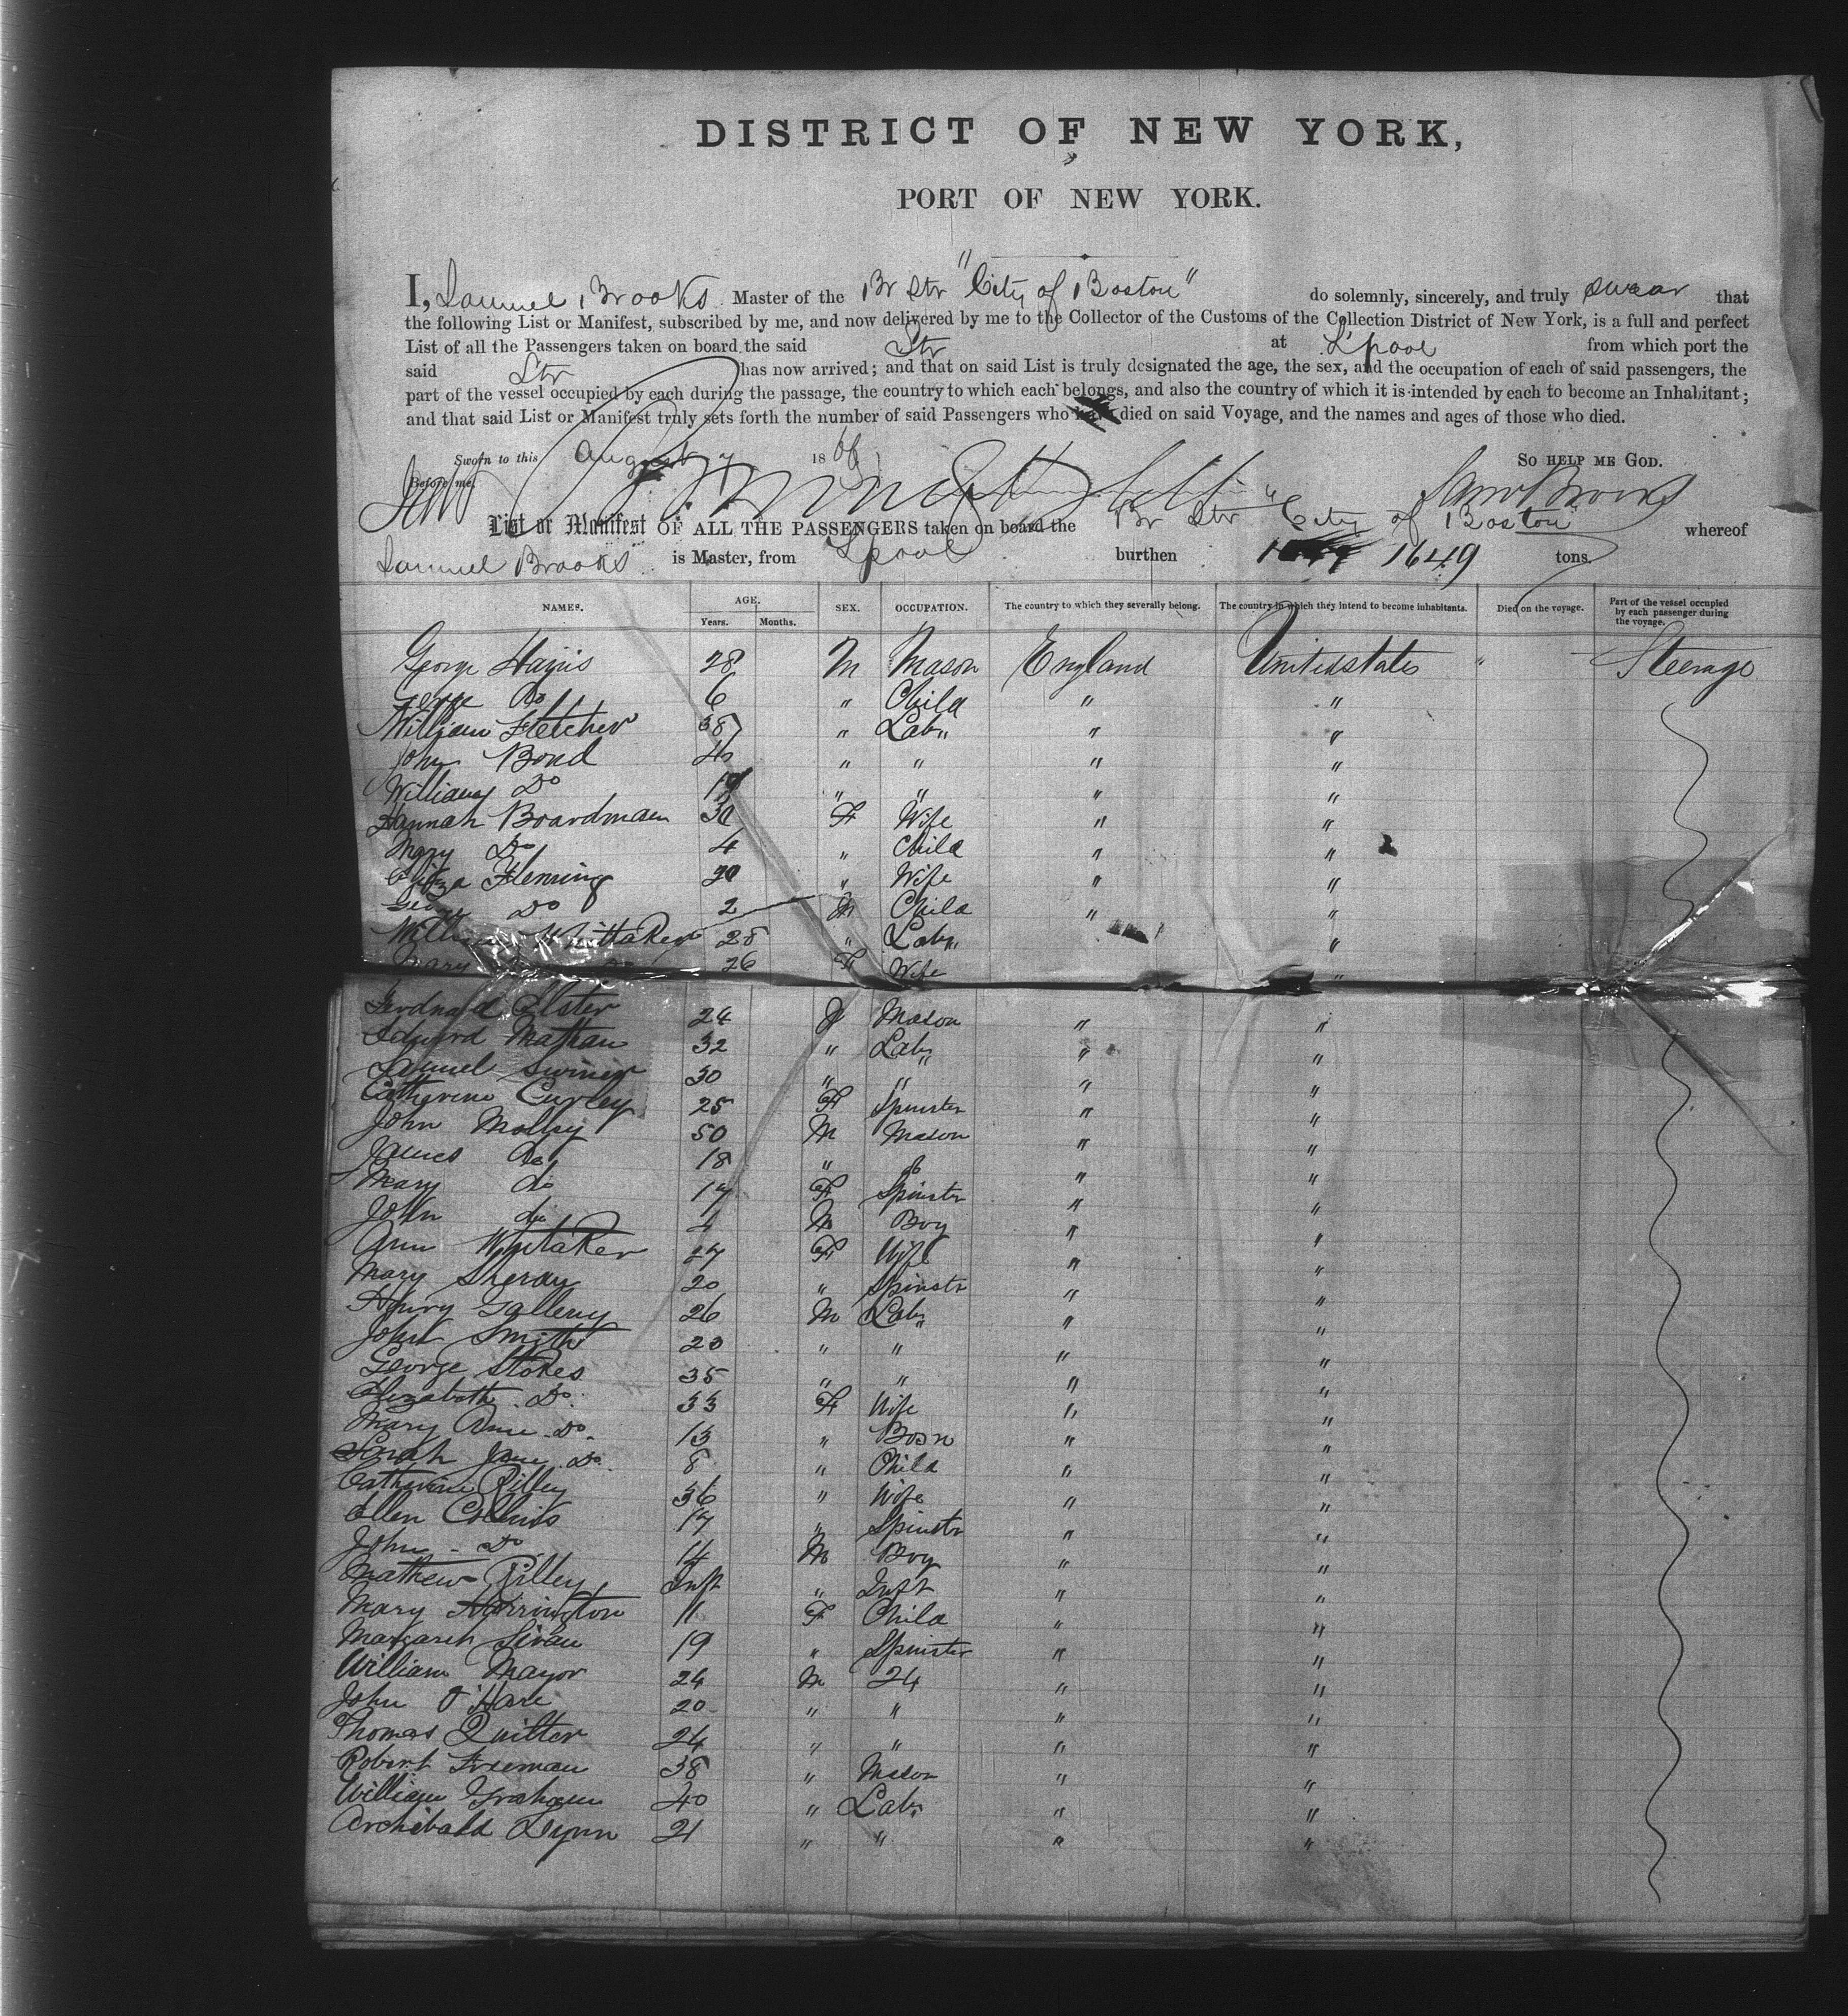 DISTRICT OF NEW YORK,
PORT OF NEW YORK.
I, Samuel Brooks Master of the Br Str "City of Boston" do solemnly, sincerely, and truly swear that
the following List or Manifest, subscribed by me, and now delivered by me to the Collector of the Customs of the Collection District of New York, is a full and perfect
List of all the Passengers taken on board the said Str at L'pool from which port the
said Str has now arrived; and that on said List is truly designated the age, the sex, and the occupation of each of said passengers, the
part of the vessel occupied by each during the passage, the country to which each belongs, and also the country of which it is intended by each to become an Inhabitant;
and that said List or Manifest truly sets forth the number of said Passengers who have died on said Voyage, and the names and ages of those who died.
Sworn to this August 7 1866 SO HELP ME GOD.
Before me, Saml Brooks
List or Manifest OF ALL THE PASSENGERS taken on board the Br Str "City of Boston" whereof
Samuel Brooks is Master, from L'pool burthen 1649 tons.
NAMES. AGE. Years. Months. SEX. OCCUPATION. The country to which they severally belong. The country in which they intend to become inhabitants. Died on the voyage. Part of the vessel occupied by each passenger during the voyage.
George 28 M Mason England United States " Steerage
George Do 6 " Child " "
William Fletcher 38 " Lab " "
John Bond " " " "
William Do " " " "
Hannah Boardman 30 F Wife " "
Mary Do 4 " Child " "
Eliza Fleming " Wife " "
George Do 2 M Child " "
William Whittaker 28 " Lab "
Mary Do 26 F Wife "
Ferdnand Elster 24 Mason " "
Edward Mathan 32 " Lab " "
Samuel 30 " " " "
Catherine Curley 25 F Spinster " "
John Molley 50 M Mason " "
James do 18 " do " "
Mary do 17 F Spinster " "
John do M Boy " "
Ann Whitaker 27 F Wife " "
Mary Sheray 20 " Spinstr " "
Henry Gallery 26 M Lab " "
John Smith 20 " " " "
George Stokes 35 " " " "
Elizabeth Do. 33 F Wife " "
Mary Ann Do. 13 " " "
Sarah Jane Do. 8 " Child " "
Catherine Rilley 36 " Wife " "
Ellen Collins 17 " Spinstr " "
John - Do 14 M Boy " "
Mathew Rilley Inft " Inft " "
Mary Harrington 11 F Child " "
Margaret 19 " Spinster " "
William Mayor 24 M 24 " "
John O'Hare 20 " " " "
Thomas Quilter 24 " " " "
Robert Freeman 38 " Mason " "
William Graham 40 " Lab " "
Archibald Lynn 21 " " " "